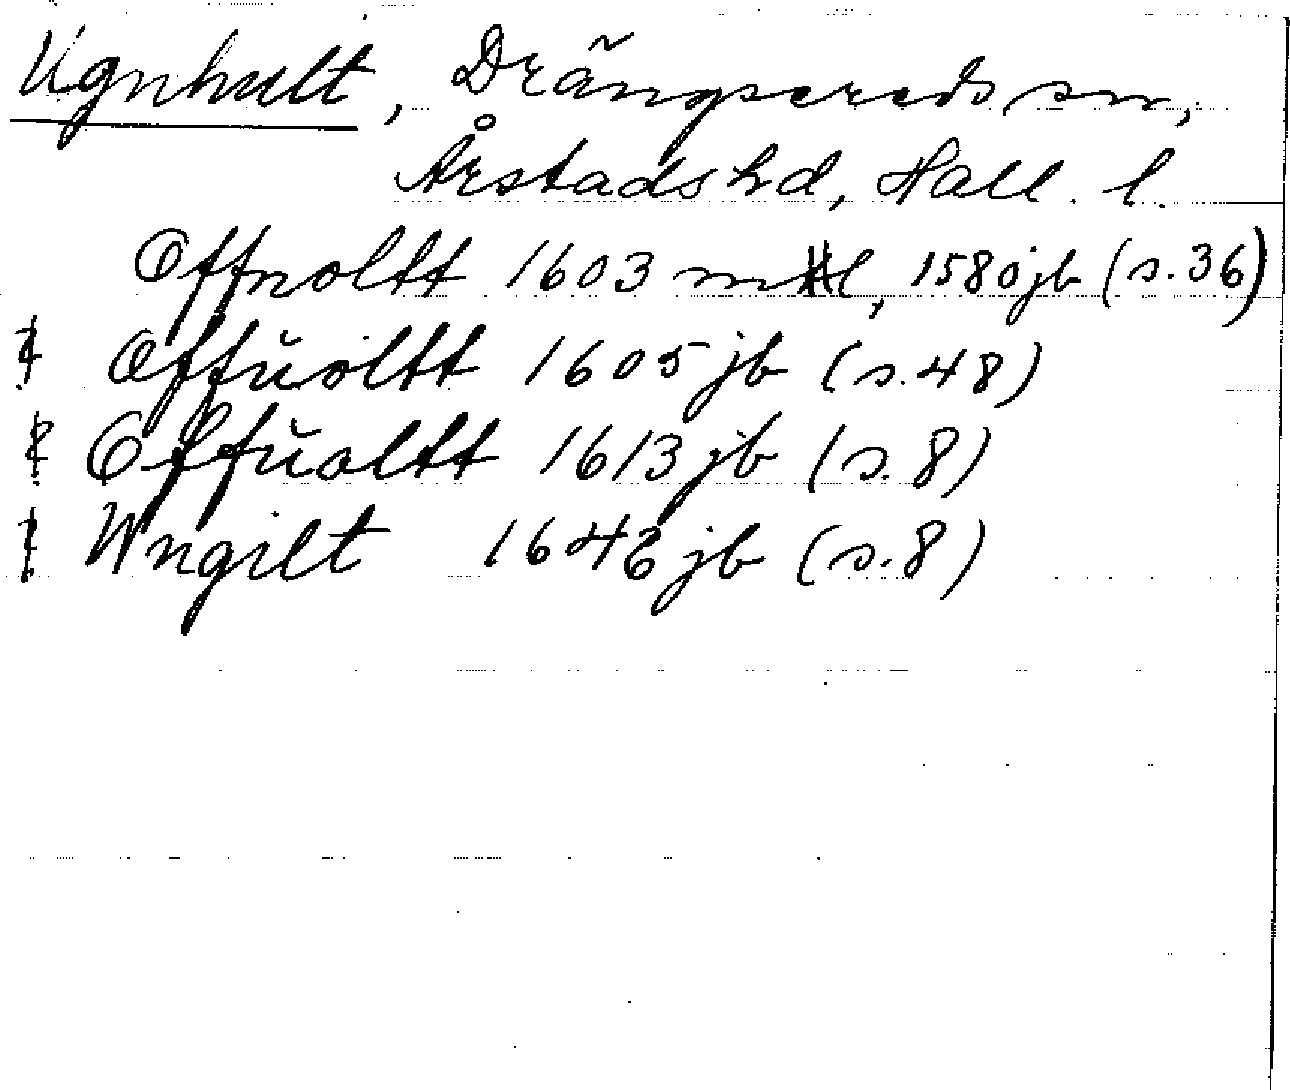 Ugnhult, Drängsereds sn,
Årstads hd, Hall. l.
Offnoltt 1603 ml, 1580 jb (s. 36)
Offŭoltt 1605 jb (s. 48)
Offŭoltt 1613 jb (s. 8)
Wngilt 1646 jb (s. 8)